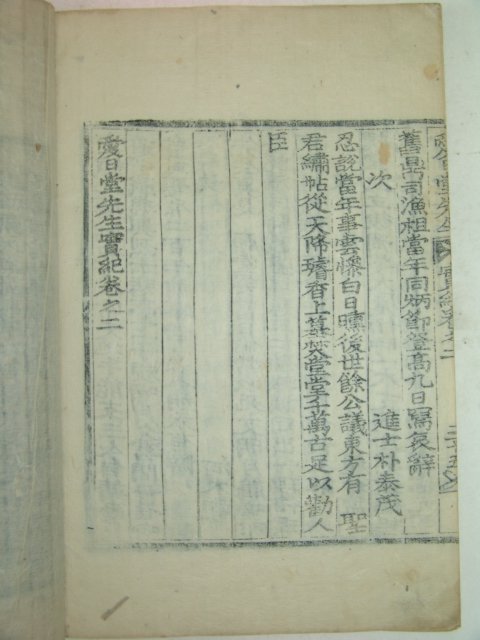 愛日堂先生實紀卷之二
舊嵒司漁祖當年同炳節登高九日寫哀辭
次
進士朴泰茂
忍說當年事雲慘白日曛後世餘公議東方有 聖
君繡帖從天降 香上墓焚堂堂子萬古足以勸人
臣
愛日堂先生實紀卷之二